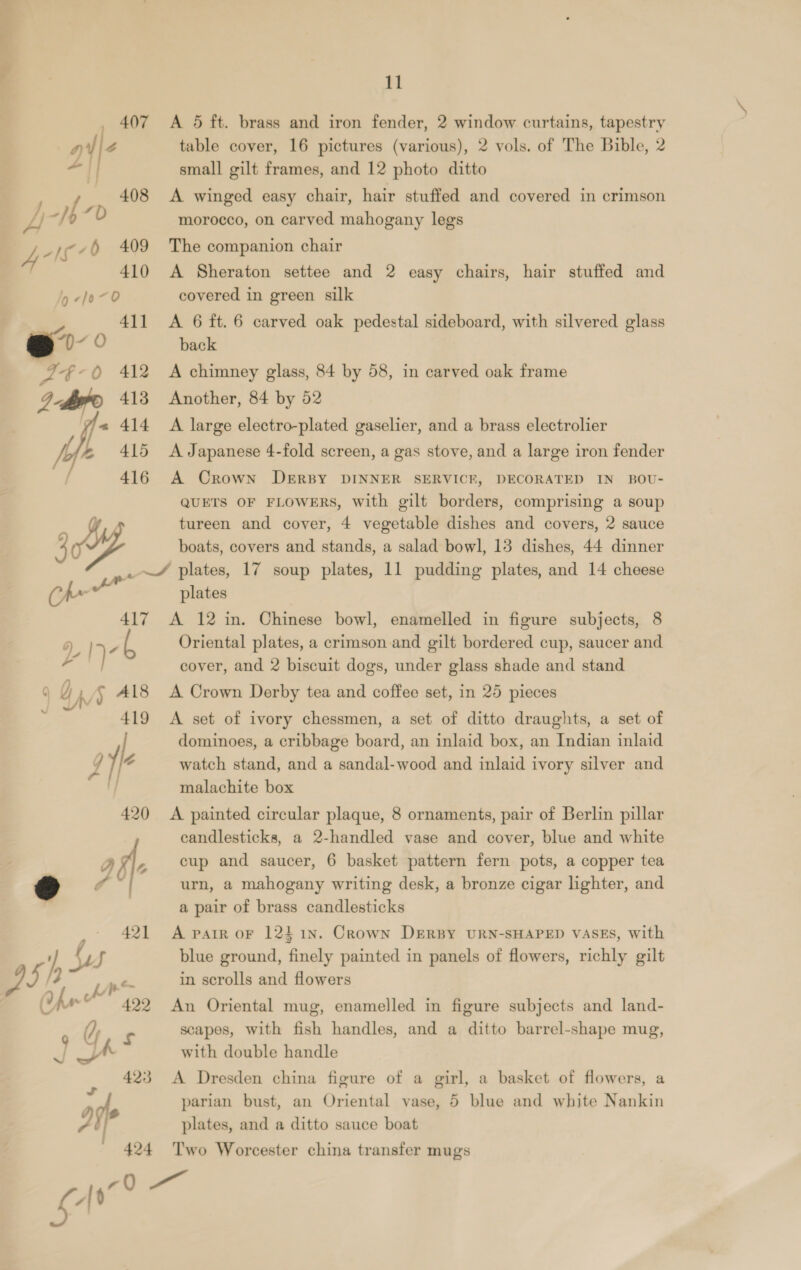 11
407 A 5 ft. brass and iron fender, 2 window curtains, tapestry
table cover, 16 pictures (various), 2 vols. of The Bible, 2
small gilt frames, and 12 photo ditto
408 A winged easy chair, hair stuffed and covered in crimson
morocco, on carved mahogany legs
409 The companion chair
410 A Sheraton settee and 2 easy chairs, hair stuffed and
covered in green silk
411 A 6 ft. 6 carved oak pedestal sideboard, with silvered glass
back
412 A chimney glass, 84 by 58, in carved oak frame
413 Another, 84 by 52
414 A large electro-plated gaselier, and a brass electrolier
415 A Japanese 4-fold screen, a gas stove, and a large iron fender
416 A Crown Derby dinner service, decorated in bou-
quets of flowers, with gilt borders, comprising a soup
tureen and cover, 4 vegetable dishes and covers, 2 sauce
boats, covers and stands, a salad bowl, 13 dishes, 44 dinner
plates, 17 soup plates, 11 pudding plates, and 14 cheese
plates
417 A 12 in. Chinese bowl, enamelled in figure subjects, 8
Oriental plates, a crimson and gilt bordered cup, saucer and
cover, and 2 biscuit dogs, under glass shade and stand
418 A Crown Derby tea and coffee set, in 25 pieces
419 A set of ivory chessmen, a set of ditto draughts, a set of
dominoes, a cribbage board, an inlaid box, an Indian inlaid
watch stand, and a sandal-wood and inlaid ivory silver and
malachite box
420 A painted circular plaque, 8 ornaments, pair of Berlin pillar
candlesticks, a 2-handled vase and cover, blue and white
cup and saucer, 6 basket pattern fern pots, a copper tea
urn, a mahogany writing desk, a bronze cigar lighter, and
a pair of brass candlesticks
421 A pair of 12½ in. Crown Derby urn-shaped vases, with
blue ground, finely painted in panels of flowers, richly gilt
in scrolls and flowers
422 An Oriental mug, enamelled in figure subjects and land-
scapes, with fish handles, and a ditto barrel-shape mug,
with double handle
423 A Dresden china figure of a girl, a basket of flowers, a
parian bust, an Oriental vase, 5 blue and white Nankin
plates, and a ditto sauce boat
424 Two Worcester china transfer mugs